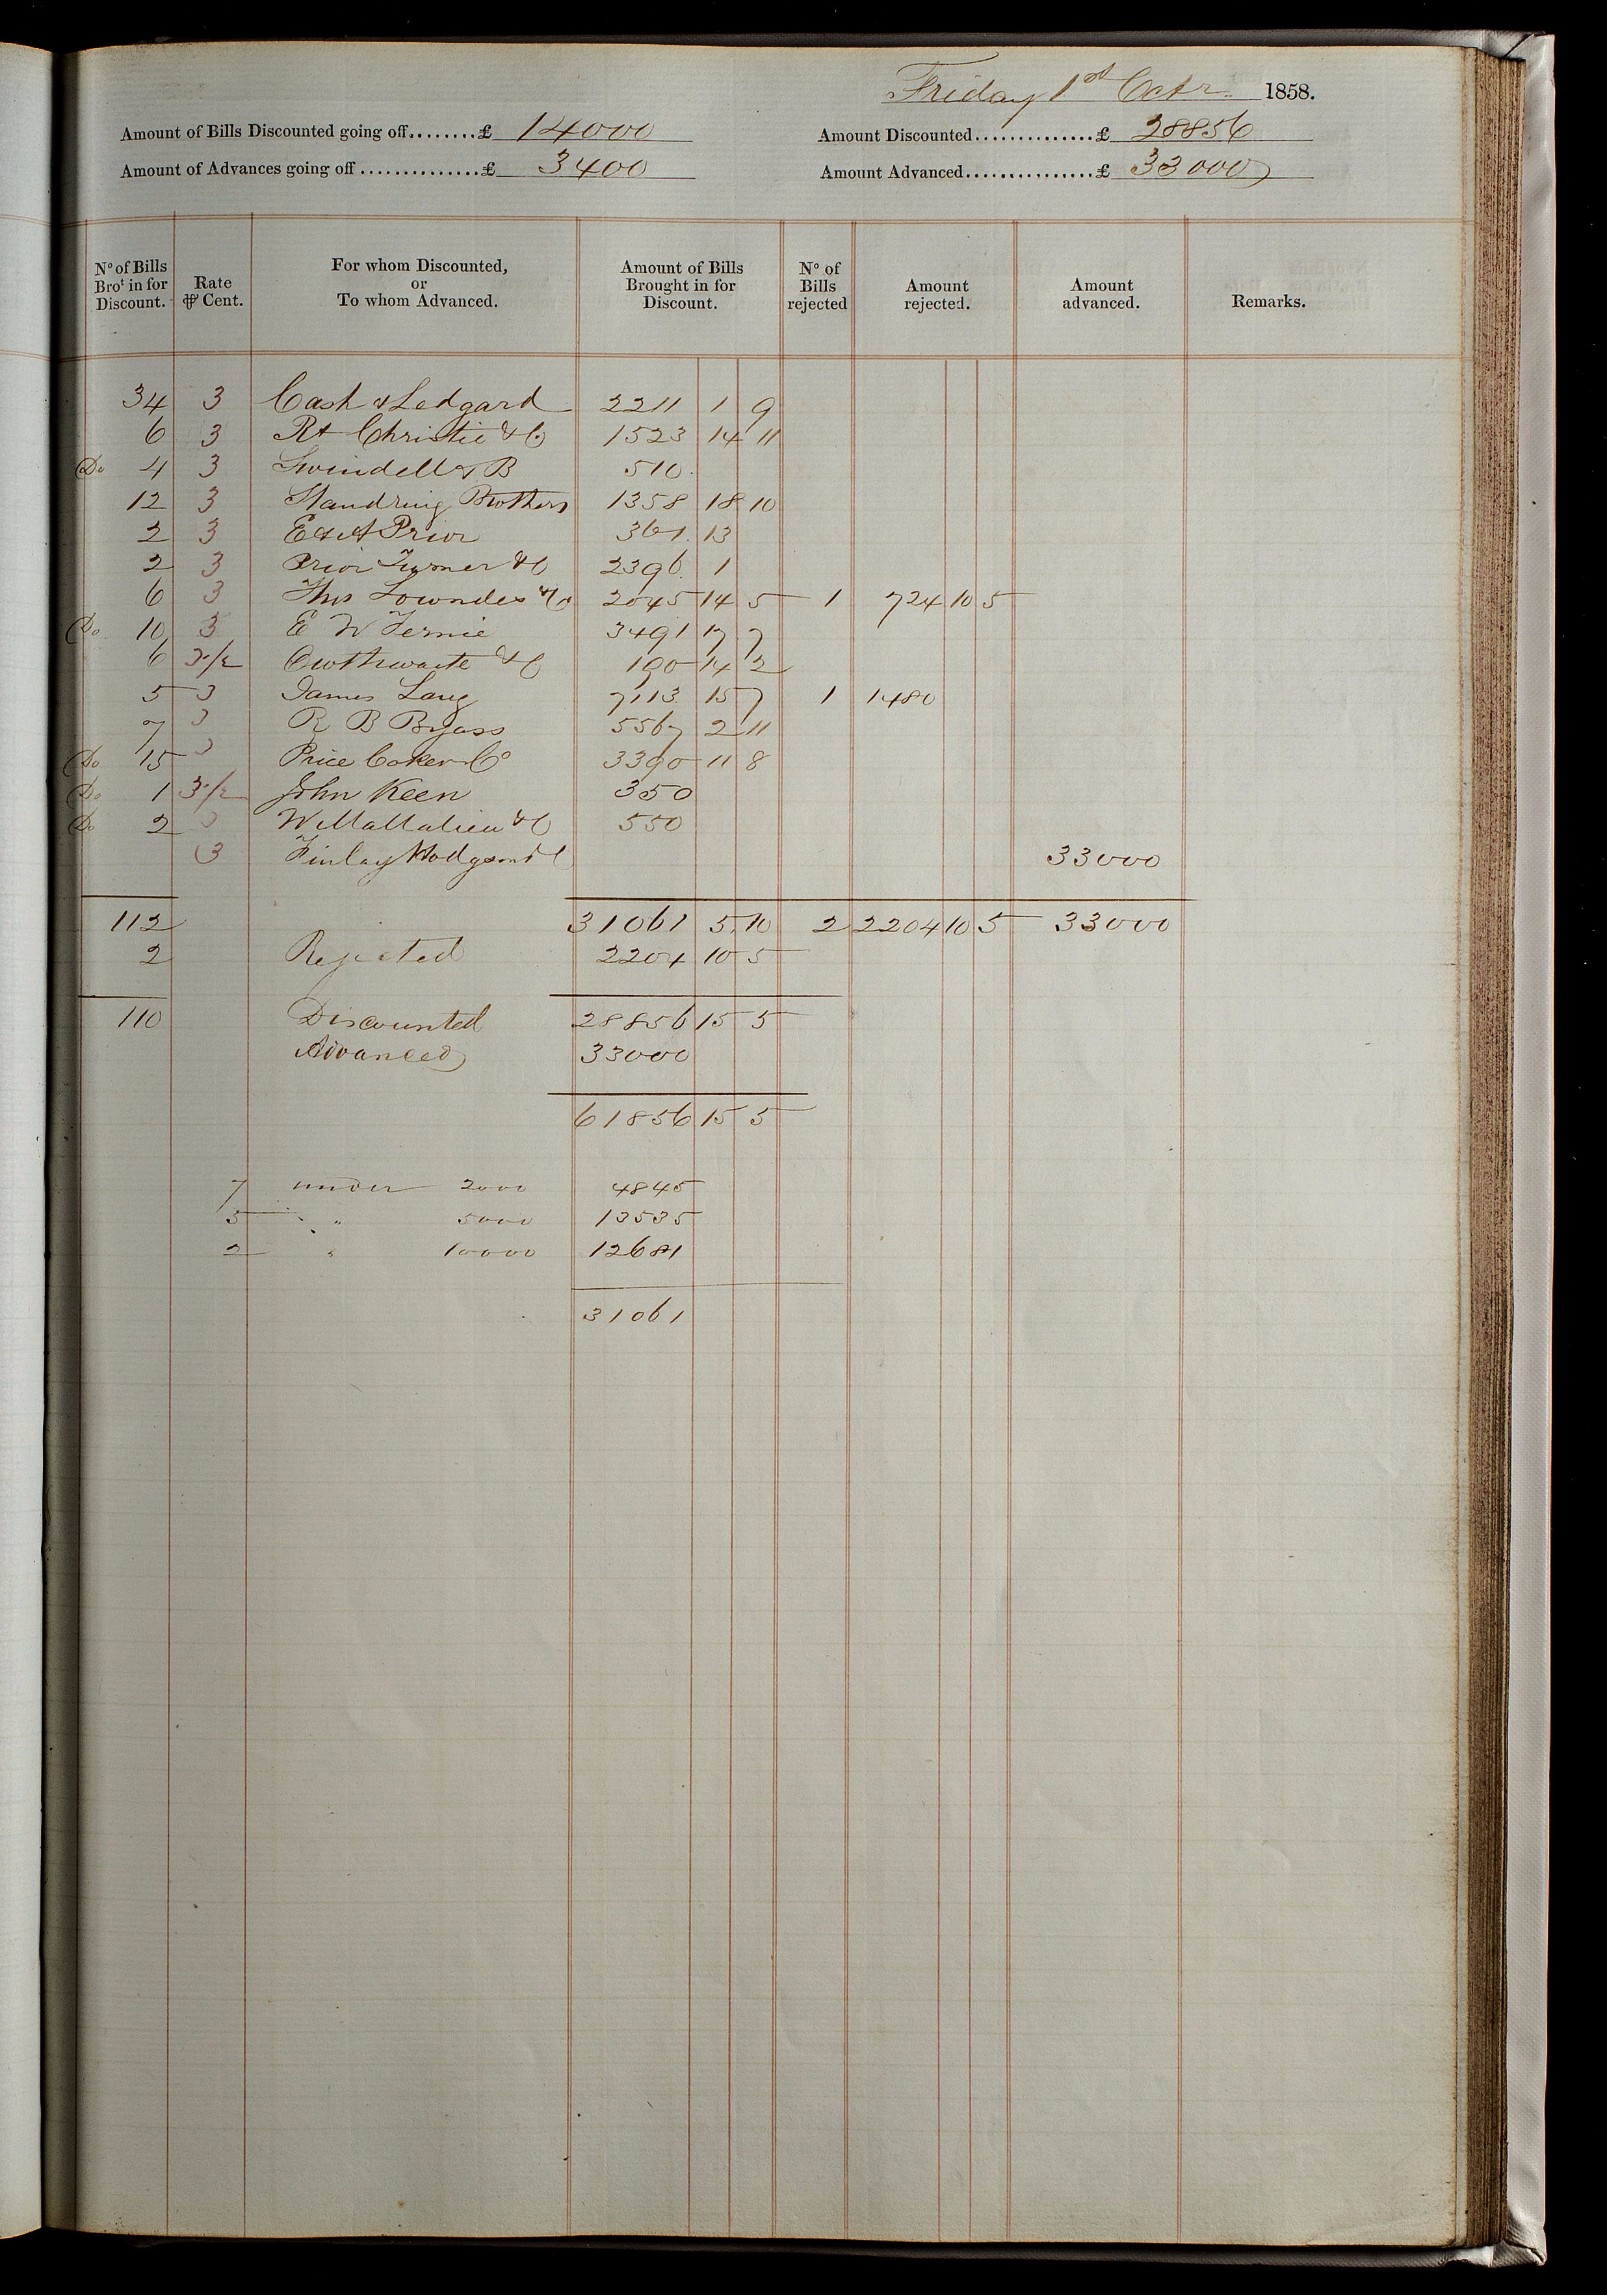 Friday 1st Octr. 1858.
Amount of Bills Discounted going off........£ 14000 Amount Discounted..............£ 28856
Amount of Advances going off..............£ 3400 Amount Advanced...............£ 33000
No of Bills Brot in for Discount. Rate ⅌ Cent. For whom Discounted, or To whom Advanced. Amount of Bills Brought in for Discount. No of Bills rejected Amount rejected. Amount advanced. Remarks.
34 3 Cash & Ledgard 2211 1 9
6 3 Rt Christie & Co 1523 14 11
Do 4 3 Swindell & B 510.
12 3 Standring Brothers 1358 18 10
2 3 E & A Prior 361. 13
2 3 Prior Turner & C 2396. 1
6 3 Thos Lowndes & Co 2045 14 5 1 724 10 5
Do 10 3 E W Fernie 3491 17 7
6 3 1/2 Outhwaite & C 190 14 2
5 3 James Lang 7113. 15 7 1 1480
7 3 R B Byass 5567 2 11
Do 15 3 Price Coker & Co 3390 11 8
Do 1 3 1/2 John Keen 350
Do 2 3 W Mallalieu & C 550
3 Finlay Hodgson & C 33000
112 31061 5 10 2 2204 10 5 33000
2 Rejected 2204 10 5
110 Discounted 28856 15 5
Advanced 33000
61856 15 5
7 under 2000 4845
5 " 5000 13535
2 " 10000 12681
31061